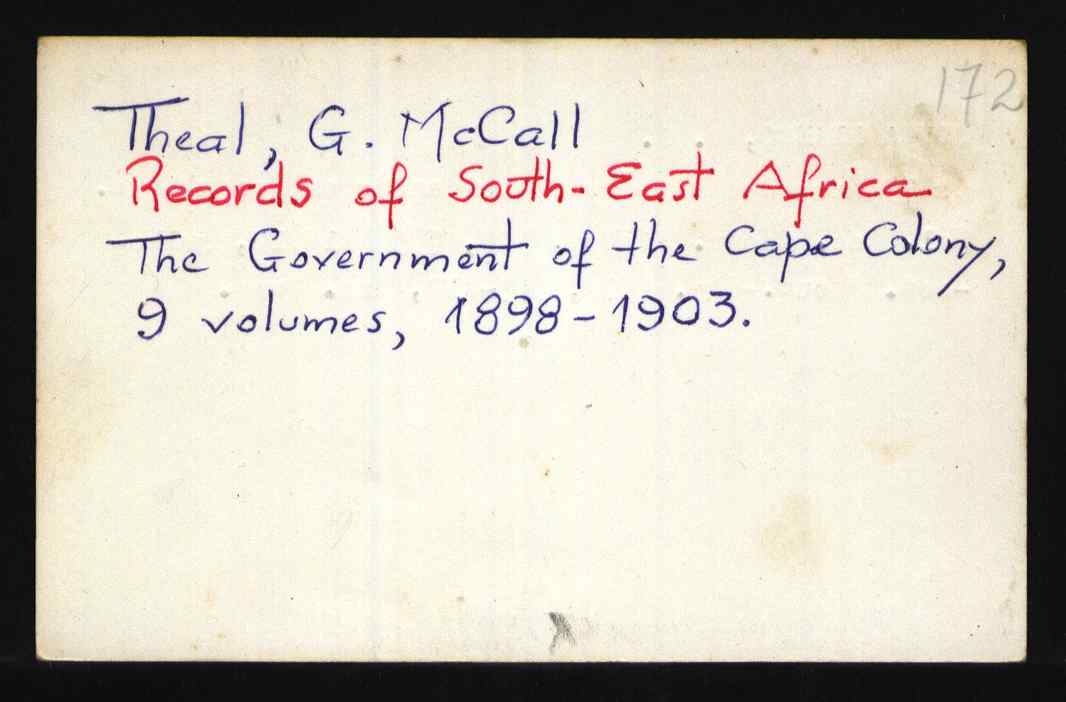 172
Theal, G. McCall
Records of South-East Africa
The Government of the Cape Colony,
9 volumes, 1898-1903.